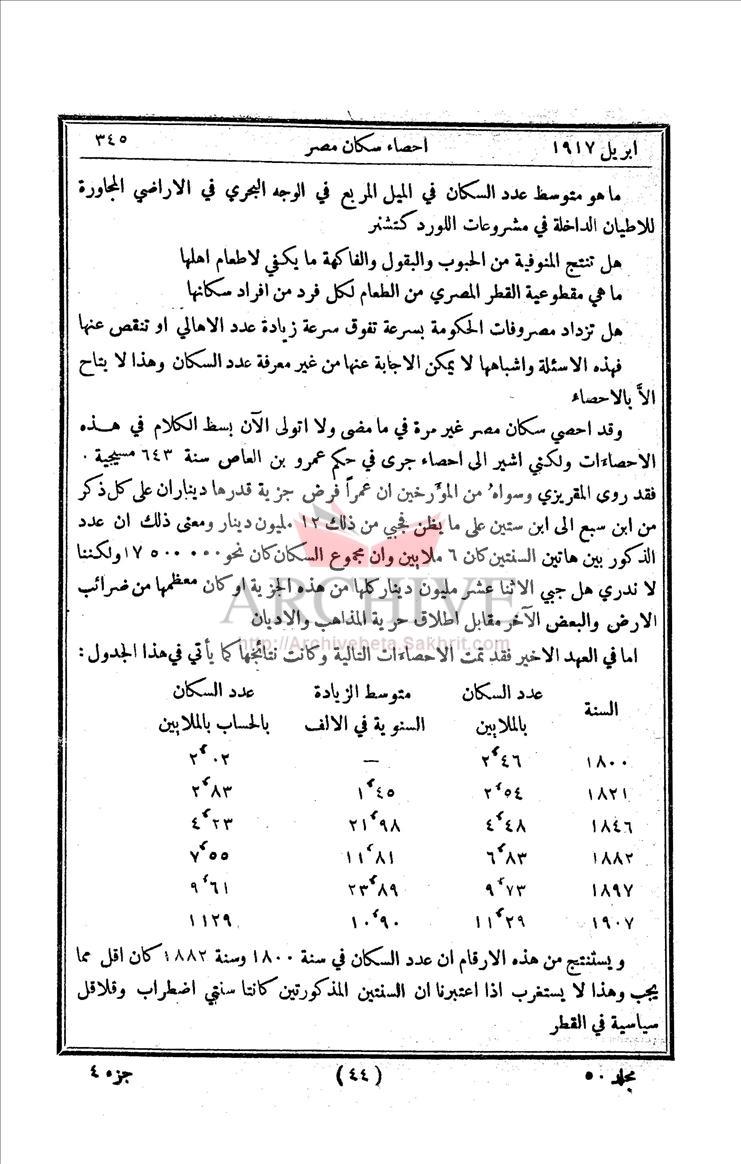 ابريل ١٩١٧ احصاء سكان مصر ٣٤٥
ما هو متوسط عدد السكان في الميل المربع في الوجه البحري في الاراضي المجاورة
للاطيان الداخلة في مشروعات اللورد كتشنر
هل تنتج المنوفية من الحبوب والبقول والفاكهة ما يكفي لاطعام اهلها
ما هي مقطوعية القطر المصري من الطعام لكل فرد من افراد سكانها
هل تزداد مصروفات الحكومة بسرعة تفوق سرعة زيادة عدد الاهالي او تنقص عنها
فهذه الاسئلة واشباهها لا يمكن الاجابة عنها من غير معرفة عدد السكان وهذا لا يتاح
الاَّ بالاحصاء
وقد احصي سكان مصر غير مرة في ما مضى ولا اتولى الآن بسط الكلام في هذه
الاحصاءات ولكني اشير الى احصاء جرى في حكم عمرو بن العاص سنة ٦٤٣ مسيحية .
فقد روى المقريزي وسواهُ من المؤرخين ان عمراً فرض جزية قدرها ديناران على كل ذكر
من ابن سبع الى ابن ستين على ما يظن فجبي من ذلك ١٢ مليون دينار ومعنى ذلك ان عدد
الذكور بين هاتين السنتين كان ٦ ملايين وان مجموع السكان كان نحو ٠٠٠ ٥٠٠ ١٧ ولكننا
لا ندري هل جبي الاثنا عشر مليون دينار كلها من هذه الجزية او كان معظمها من ضرائب
الارض والبعض الآخر مقابل اطلاق حرية المذاهب والاديان
ARCHIVE
http://Archivebeta.Sakhrit.com
اما في العهد الاخير فقد تمت الاحصاءات التالية وكانت نتائجها كما يأتي في هذا الجدول :
السنة عدد السكان متوسط الزيادة عدد السكان
بالملايين السنوية في الالف بالحساب بالملايين
١٨٠٠ ٢٬٤٦ — ٢٬٠٢
١٨٢١ ٢٬٥٤ ١٬٤٥ ٢٬٨٣
١٨٤٦ ٤٬٤٨ ٢١٬٩٨ ٤٬٢٣
١٨٨٢ ٦٬٨٣ ١١٬٨١ ٧٬٥٥
١٨٩٧ ٩٬٧٣ ٢٣٬٨٩ ٩٬٦١
١٩٠٧ ١١٬٢٩ ١٠٬٩٠ ١١٢٩
ويستنتج من هذه الارقام ان عدد السكان في سنة ١٨٠٠ وسنة ١٨٨٢ كان اقل مما
يجب وهذا لا يستغرب اذا اعتبرنا ان السنتين المذكورتين كانتا سنتي اضطراب وقلاقل
سياسية في القطر
مجلد ٥٠ (٤٤) جزء ٤